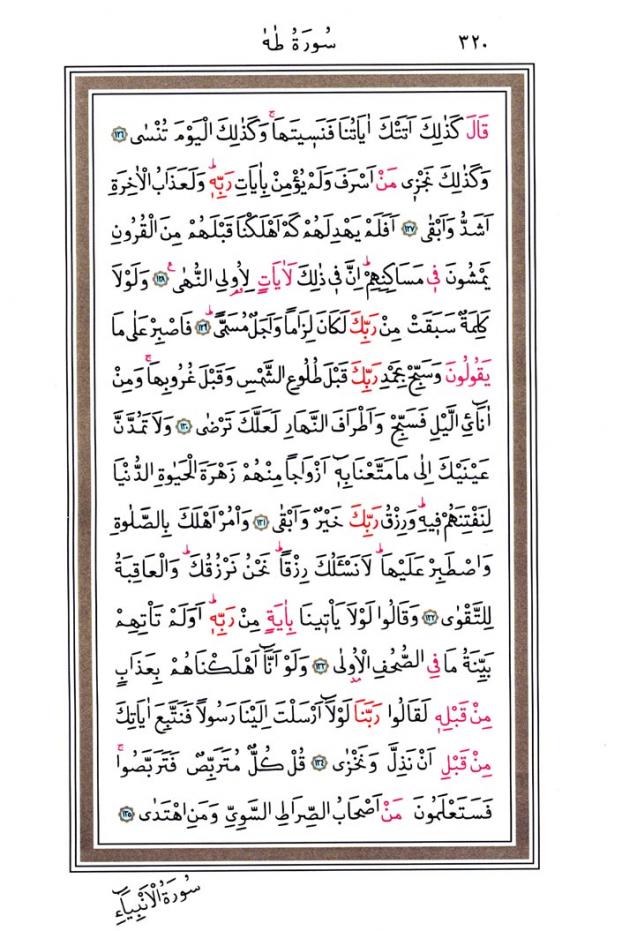 سُورَةُ طٰهٰ ٣٢٠
قَالَ كَذٰلِكَ اَتَتْكَ اٰيَاتُنَا فَنَسٖيتَهَاۚ وَكَذٰلِكَ الْيَوْمَ تُنْسٰى ﴿١٢٦﴾
وَكَذٰلِكَ نَجْزٖى مَنْ اَسْرَفَ وَلَمْ يُؤْمِنْ بِاٰيَاتِ رَبِّهٖۜ وَلَعَذَابُ الْاٰخِرَةِ
اَشَدُّ وَاَبْقٰى ﴿١٢٧﴾ اَفَلَمْ يَهْدِ لَهُمْ كَمْ اَهْلَكْنَا قَبْلَهُمْ مِنَ الْقُرُونِ
يَمْشُونَ فٖى مَسَاكِنِهِمْۜ اِنَّ فٖى ذٰلِكَ لَاٰيَاتٍ لِاُولِى النُّهٰى ﴿١٢٨﴾ وَلَوْلَا
كَلِمَةٌ سَبَقَتْ مِنْ رَبِّكَ لَكَانَ لِزَاماً وَاَجَلٌ مُسَمًّىۜ ﴿١٢٩﴾ فَاصْبِرْ عَلٰى مَا
يَقُولُونَ وَسَبِّحْ بِحَمْدِ رَبِّكَ قَبْلَ طُلُوعِ الشَّمْسِ وَقَبْلَ غُرُوبِهَاۚ وَمِنْ
اٰنَائِ الَّيْلِ فَسَبِّحْ وَاَطْرَافَ النَّهَارِ لَعَلَّكَ تَرْضٰى ﴿١٣٠﴾ وَلَا تَمُدَّنَّ
عَيْنَيْكَ اِلٰى مَا مَتَّعْنَا بِهٖٓ اَزْوَاجاً مِنْهُمْ زَهْرَةَ الْحَيٰوةِ الدُّنْيَا
لِنَفْتِنَهُمْ فٖيهِۜ وَرِزْقُ رَبِّكَ خَيْرٌ وَاَبْقٰى ﴿١٣١﴾ وَأْمُرْ اَهْلَكَ بِالصَّلٰوةِ
وَاصْطَبِرْ عَلَيْهَاۜ لَا نَسْـَٔلُكَ رِزْقاًۜ نَحْنُ نَرْزُقُكَۜ وَالْعَاقِبَةُ
لِلتَّقْوٰى ﴿١٣٢﴾ وَقَالُوا لَوْلَا يَأْتٖينَا بِاٰيَةٍ مِنْ رَبِّهٖۜ اَوَلَمْ تَأْتِهِمْ
بَيِّنَةُ مَا فِى الصُّحُفِ الْاُولٰى ﴿١٣٣﴾ وَلَوْ اَنَّٓا اَهْلَكْنَاهُمْ بِعَذَابٍ
مِنْ قَبْلِهٖ لَقَالُوا رَبَّنَا لَوْلَٓا اَرْسَلْتَ اِلَيْنَا رَسُولاً فَنَتَّبِعَ اٰيَاتِكَ
مِنْ قَبْلِ اَنْ نَذِلَّ وَنَخْزٰى ﴿١٣٤﴾ قُلْ كُلٌّ مُتَرَبِّصٌ فَتَرَبَّصُواۚ
فَسَتَعْلَمُونَ مَنْ اَصْحَابُ الصِّرَاطِ السَّوِىِّ وَمَنِ اهْتَدٰى ﴿١٣٥﴾
سُورَةُ الْاَنْبِيَٓاءِ